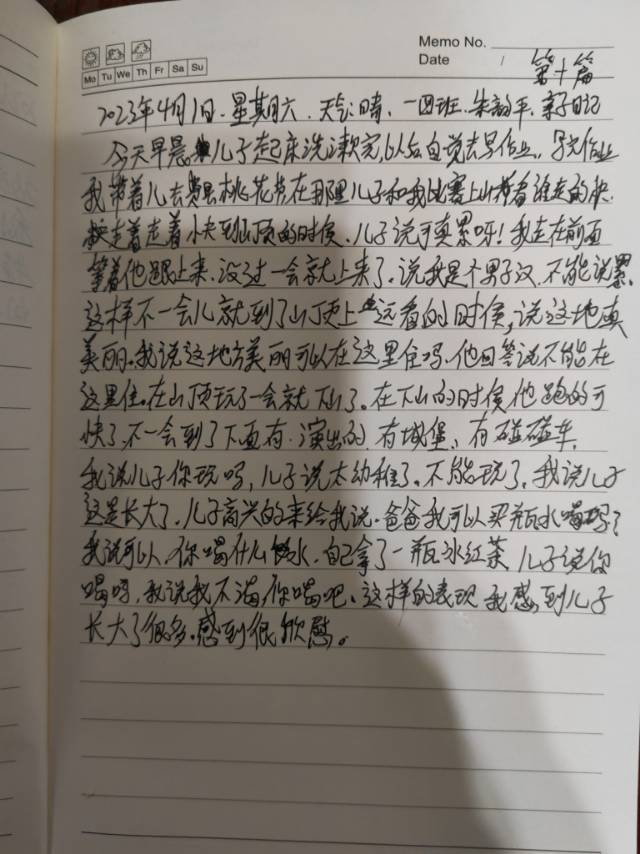 Memo No.
Date /
Mo Tu We Th Fr Sa Su
第十篇
2023年4月1日.星期六.天气:晴.一四班.朱韵平.亲子日记
今天早晨儿子起床洗漱完以后自说去写作业,写完作业
我带着儿去桃花节在那里儿子和我比赛上山看谁走的快.
走着走着小夫到山顶的时候.儿子说可真累呀!我走在前面
等着他跟上来.没过一会就上来了.说我是个男子汉.不能说累.
这样不一会儿就到了山顶上远看的时候,说这地真
美丽.我说这地方美丽可以在这里住吗.他回答说不能在
这里住.在山顶玩了一会就下山了.在下山的时候他跑的可
快了.不一会到了下面有.演出的.有城堡、有碰碰车.
我说儿子你玩吗,儿子说太幼稚了.不能玩了,我说儿子
这是长大了.儿子高兴的来给我说.爸爸我可以买瓶水喝吗?
我说可以.你喝什么水.自己拿了一瓶冰红茶 儿子说你
喝吗.我说我不渴,你喝吧.这样的表现我感到儿子
长大了很多.感到很欣慰。